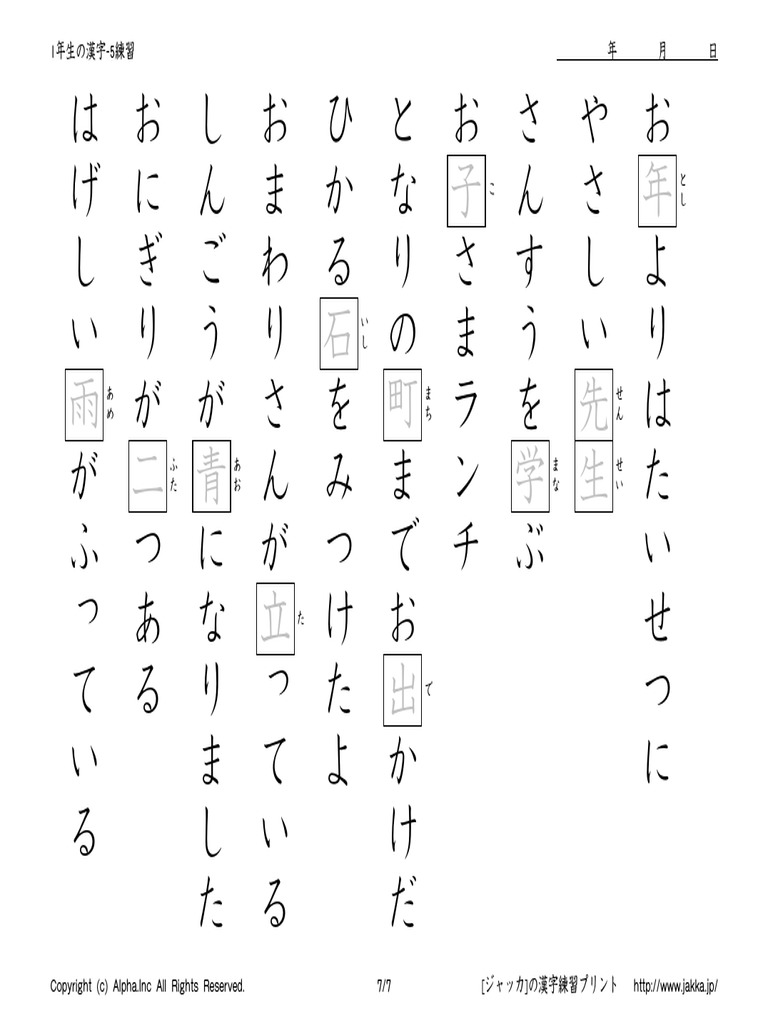 1年生の漢字-5練習
年 月 日
お年よりはたいせつに
とし
やさしい先生
せん せい
さんすうを学ぶ
まな
お子さまランチ
こ
となりの町までお出かけだ
まち で
ひかる石をみつけたよ
いし
おまわりさんが立っている
た
しんごうが青になりました
あお
おにぎりが二つある
ふた
はげしい雨がふっている
あめ
Copyright (c) Alpha.Inc All Rights Reserved.
7/7
[ジャッカ]の漢字練習プリント http://www.jakka.jp/